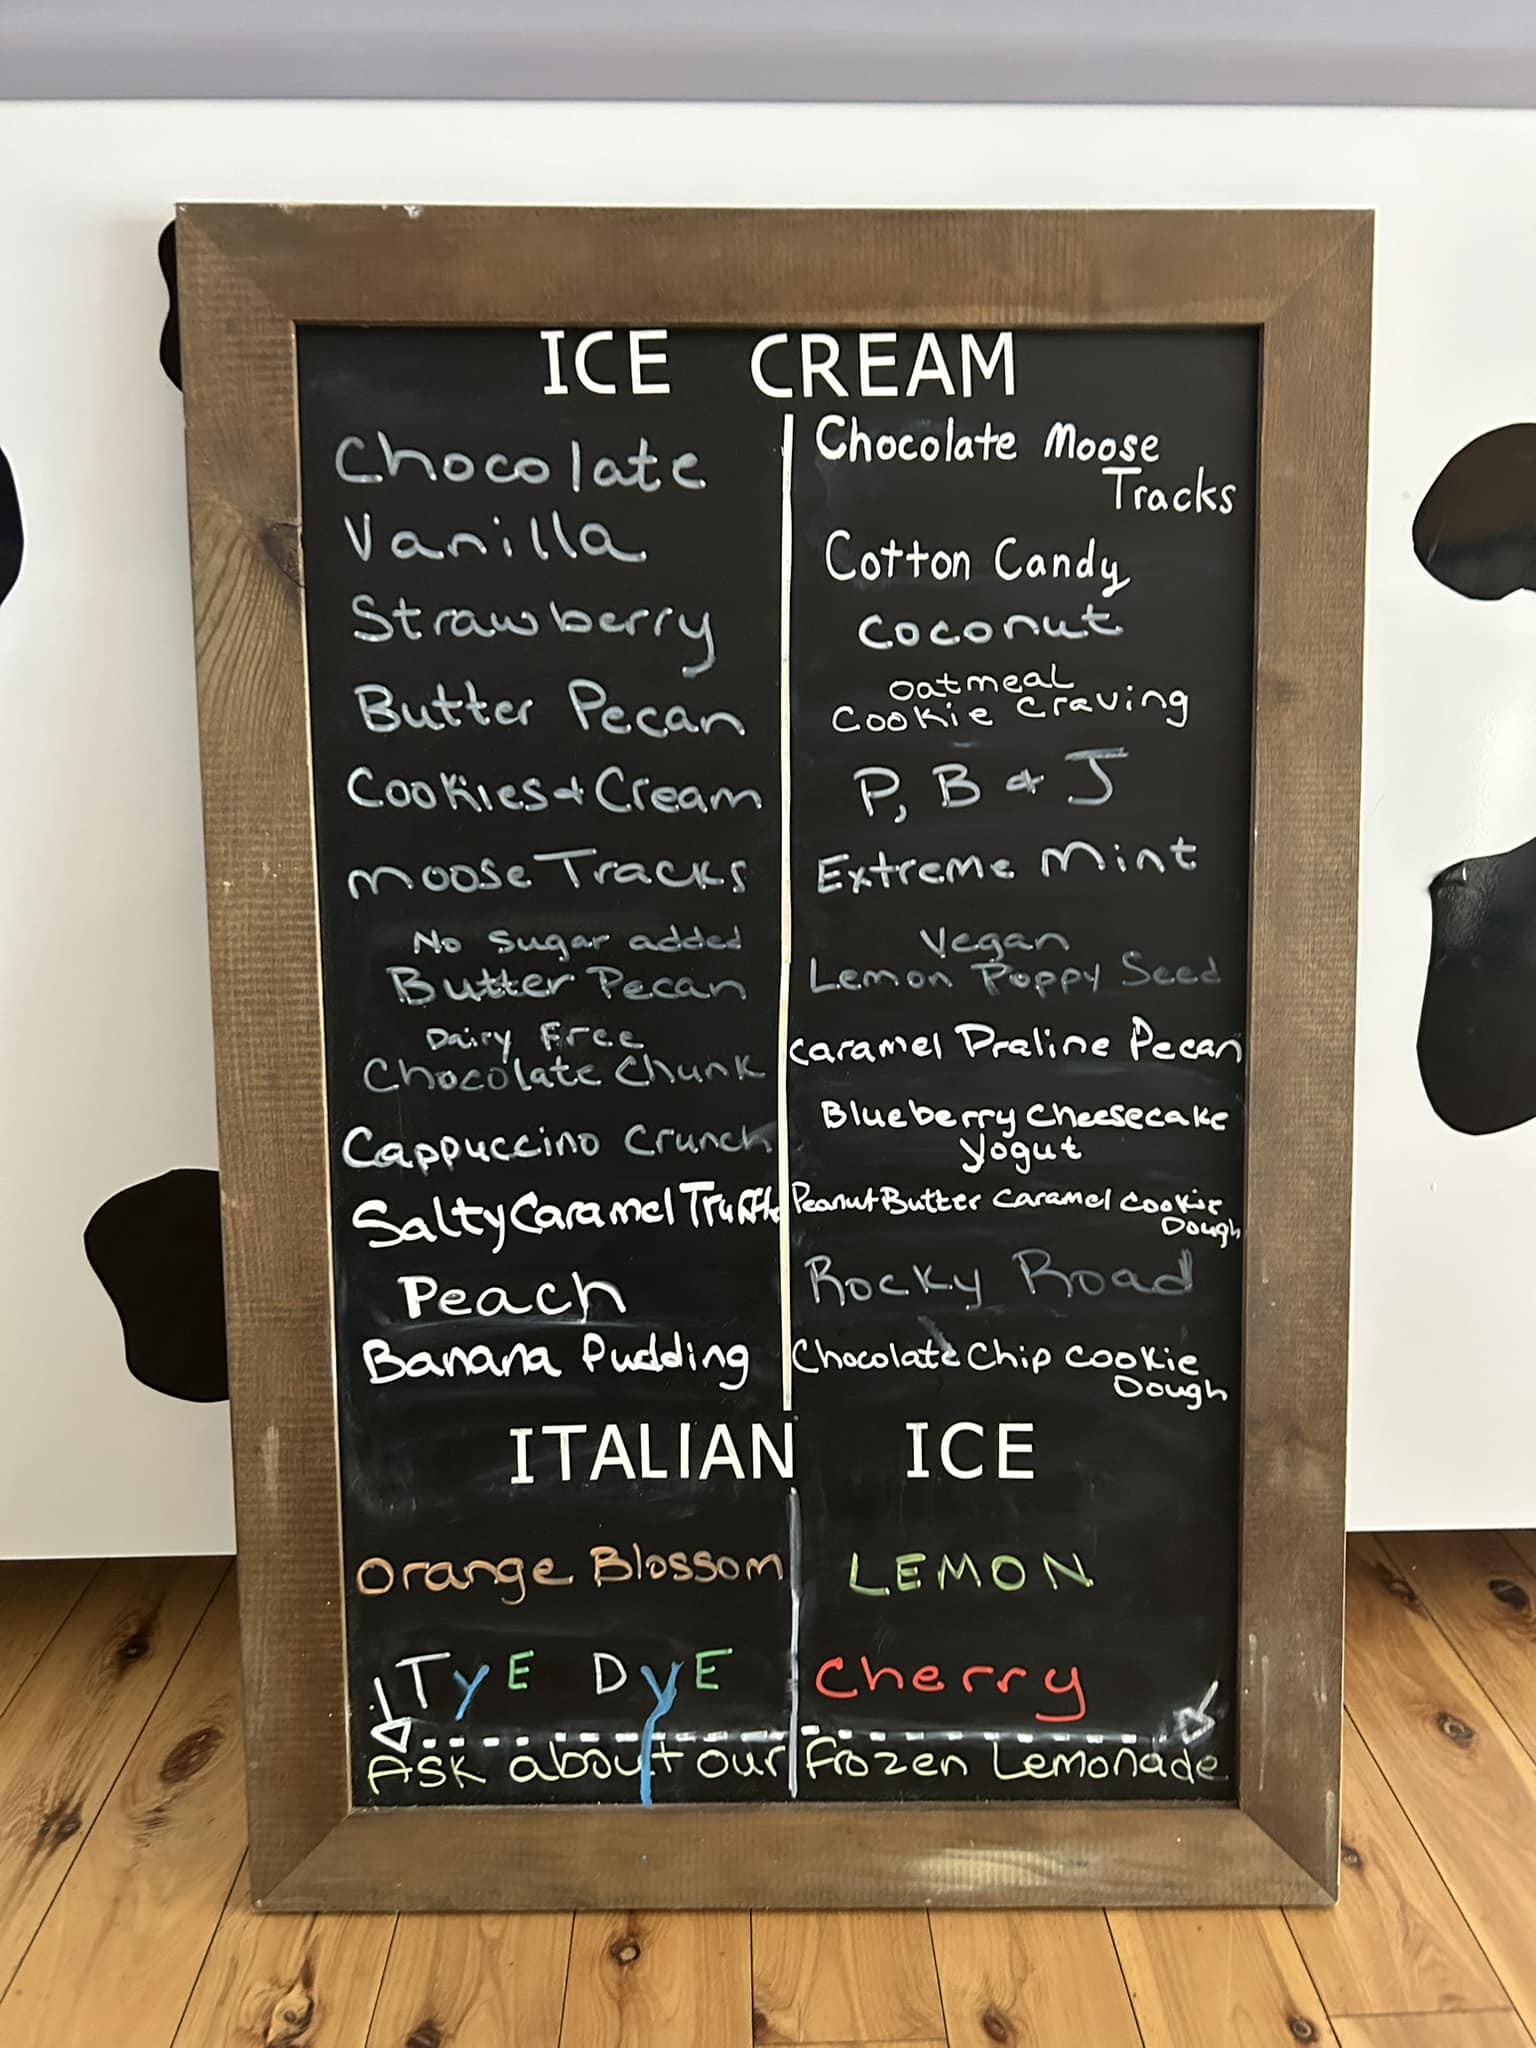 ICE CREAM
Chocolate
Vanilla
Strawberry
Butter Pecan
Cookies & Cream
Moose Tracks
No Sugar added
Butter Pecan
Dairy Free
Chocolate Chunk
Cappuccino Crunch
Salty Caramel Truffle
Peach
Banana Pudding
Chocolate Moose
Tracks
Cotton Candy
Coconut
Oatmeal
Cookie Craving
P, B & J
Extreme Mint
Vegan
Lemon Poppy Seed
Caramel Praline Pecan
Blueberry Cheesecake
Yogut
Peanut Butter Caramel Cookie
Dough
Rocky Road
Chocolate Chip Cookie
Dough
ITALIAN ICE
Orange Blossom
TyE DyE
LEMON
Cherry
Ask about our Frozen Lemonade